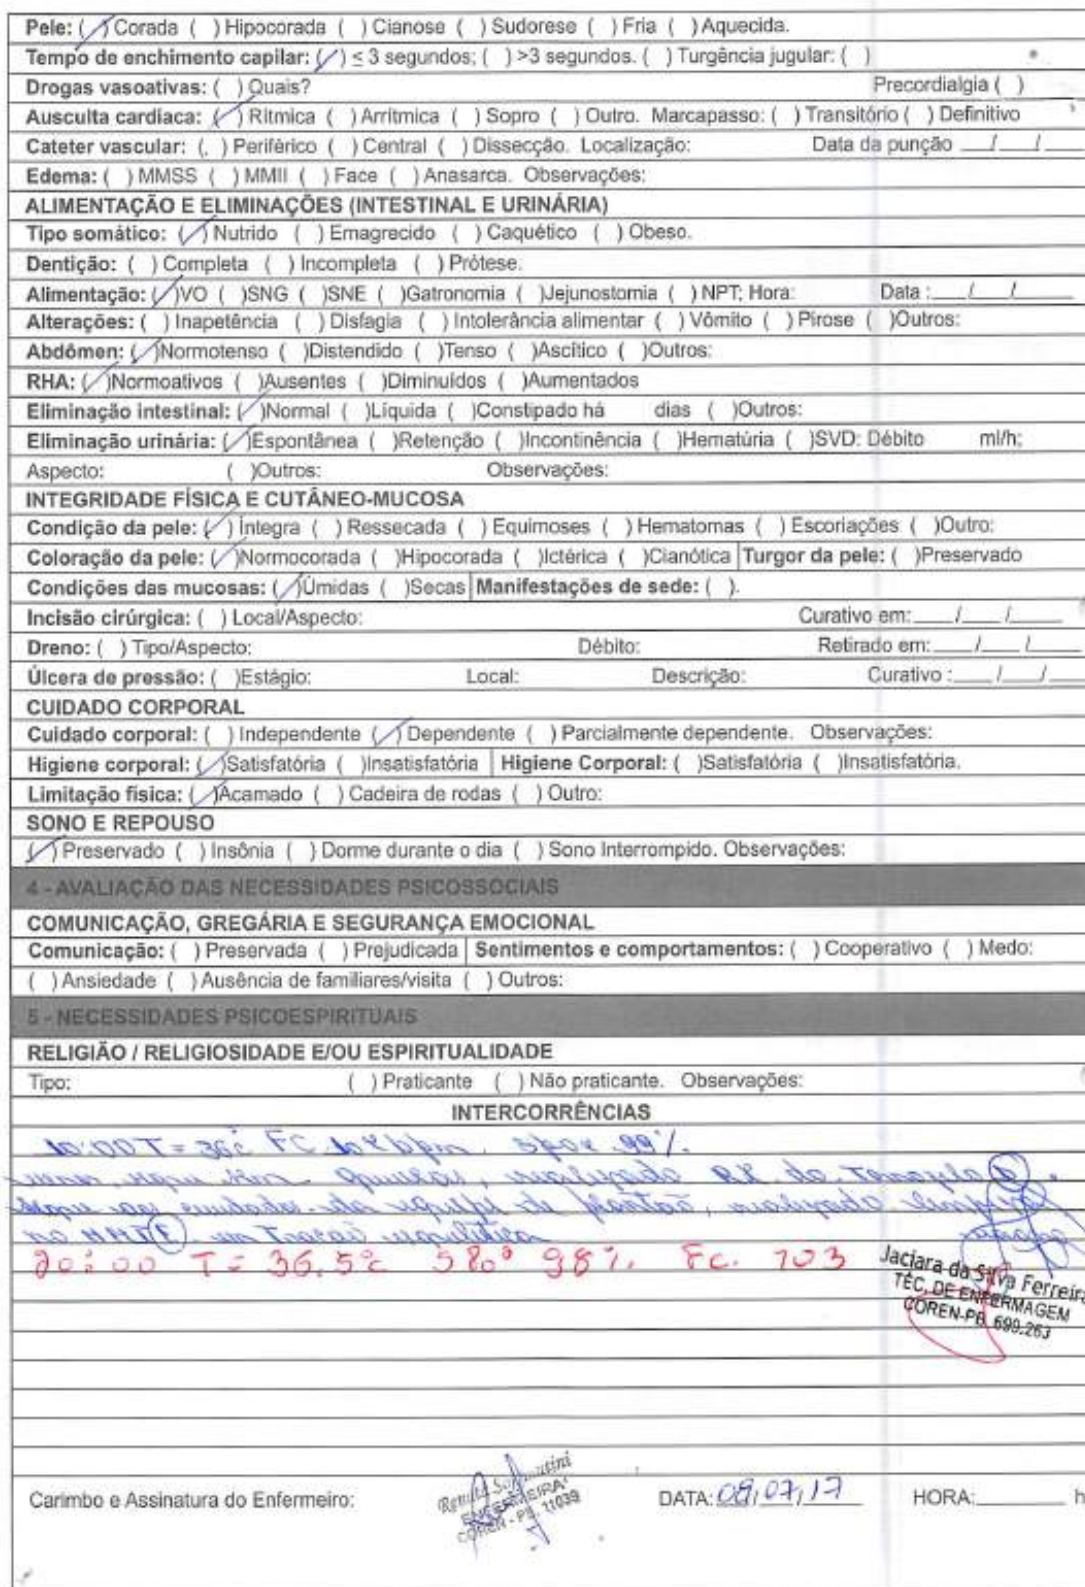 Pele: (/) Corada ( ) Hipocorada ( ) Cianose ( ) Sudorese ( ) Fria ( ) Aquecida.
Tempo de enchimento capilar: (/) ≤ 3 segundos; ( ) >3 segundos. ( ) Turgência jugular: ( )
Drogas vasoativas: ( ) Quais? Precordialgia ( )
Ausculta cardíaca: (/) Rítmica ( ) Arrítmica ( ) Sopro ( ) Outro. Marcapasso: ( ) Transitório ( ) Definitivo
Cateter vascular: ( ) Periférico ( ) Central ( ) Dissecção. Localização: Data da punção ___/___/___
Edema: ( ) MMSS ( ) MMII ( ) Face ( ) Anasarca. Observações:
ALIMENTAÇÃO E ELIMINAÇÕES (INTESTINAL E URINÁRIA)
Tipo somático: (/) Nutrido ( ) Emagrecido ( ) Caquético ( ) Obeso.
Dentição: ( ) Completa ( ) Incompleta ( ) Prótese.
Alimentação: (/)VO ( )SNG ( )SNE ( )Gatronomia ( )Jejunostomia ( ) NPT; Hora: Data :___/___/___
Alterações: ( ) Inapetência ( ) Disfagia ( ) Intolerância alimentar ( ) Vômito ( ) Pirose ( )Outros:
Abdômen: (/)Normotenso ( )Distendido ( )Tenso ( )Ascítico ( )Outros:
RHA: (/)Normoativos ( )Ausentes ( )Diminuídos ( )Aumentados
Eliminação intestinal: (/)Normal ( )Líquida ( )Constipado há dias ( )Outros:
Eliminação urinária: (/)Espontânea ( )Retenção ( )Incontinência ( )Hematúria ( )SVD: Débito ml/h;
Aspecto: ( )Outros: Observações:
INTEGRIDADE FÍSICA E CUTÂNEO-MUCOSA
Condição da pele: (/) Íntegra ( ) Ressecada ( ) Equimoses ( ) Hematomas ( ) Escoriações ( )Outro:
Coloração da pele: (/)Normocorada ( )Hipocorada ( )Ictérica ( )Cianótica Turgor da pele: ( )Preservado
Condições das mucosas: (/)Úmidas ( )Secas Manifestações de sede: ( ).
Incisão cirúrgica: ( ) Local/Aspecto: Curativo em: ___/___/___
Dreno: ( ) Tipo/Aspecto: Débito: Retirado em: ___/___/___
Úlcera de pressão: ( )Estágio: Local: Descrição: Curativo :___/___/___
CUIDADO CORPORAL
Cuidado corporal: ( ) Independente (/) Dependente ( ) Parcialmente dependente. Observações:
Higiene corporal: (/)Satisfatória ( )Insatisfatória Higiene Corporal: ( )Satisfatória ( )Insatisfatória.
Limitação física: (/)Acamado ( ) Cadeira de rodas ( ) Outro:
SONO E REPOUSO
(/) Preservado ( ) Insônia ( ) Dorme durante o dia ( ) Sono Interrompido. Observações:
4 - AVALIAÇÃO DAS NECESSIDADES PSICOSSOCIAIS
COMUNICAÇÃO, GREGÁRIA E SEGURANÇA EMOCIONAL
Comunicação: ( ) Preservada ( ) Prejudicada Sentimentos e comportamentos: ( ) Cooperativo ( ) Medo:
( ) Ansiedade ( ) Ausência de familiares/visita ( ) Outros:
5 - NECESSIDADES PSICOESPIRITUAIS
RELIGIÃO / RELIGIOSIDADE E/OU ESPIRITUALIDADE
Tipo: ( ) Praticante ( ) Não praticante. Observações:
INTERCORRÊNCIAS
10:00 T = 36c FC bpm. 99%.
realizado RX do
segue aos cuidados da equipe de plantão, realizado
no em
20:00 T = 36.5c 98% Fc. 103
Jaciara da Silva Ferreira
TÉC. DE ENFERMAGEM
COREN-PB 699.263
Carimbo e Assinatura do Enfermeiro: ENFERMEIRA COREN - PB - 11039 DATA: 08/07/17 HORA:______ h